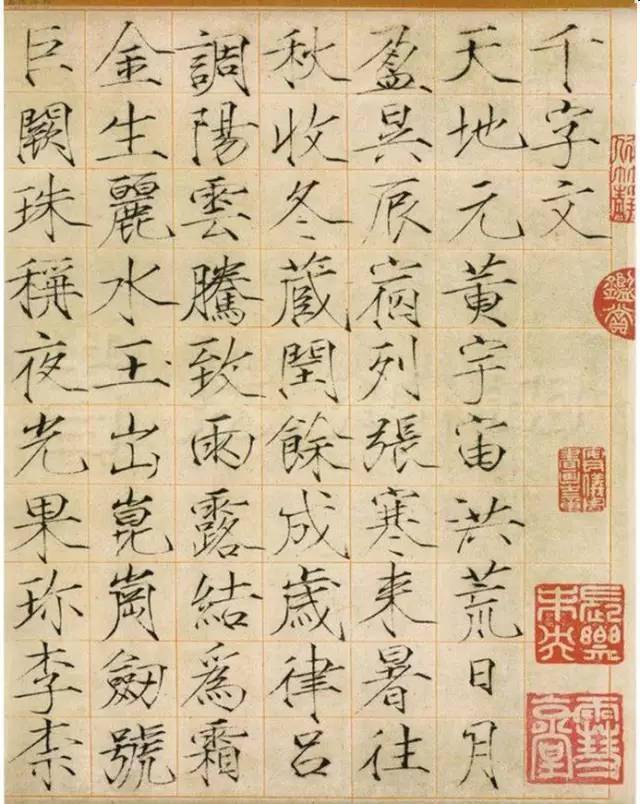 千字文
天地元黄宇宙洪荒日月
盈昃辰宿列張寒来暑往
秋收冬蔵閏餘成歲律呂
調陽雲騰致雨露結爲霜
金生麗水玉出崑崗劍號
巨闕珠稱夜光果珎李柰
鑑賞